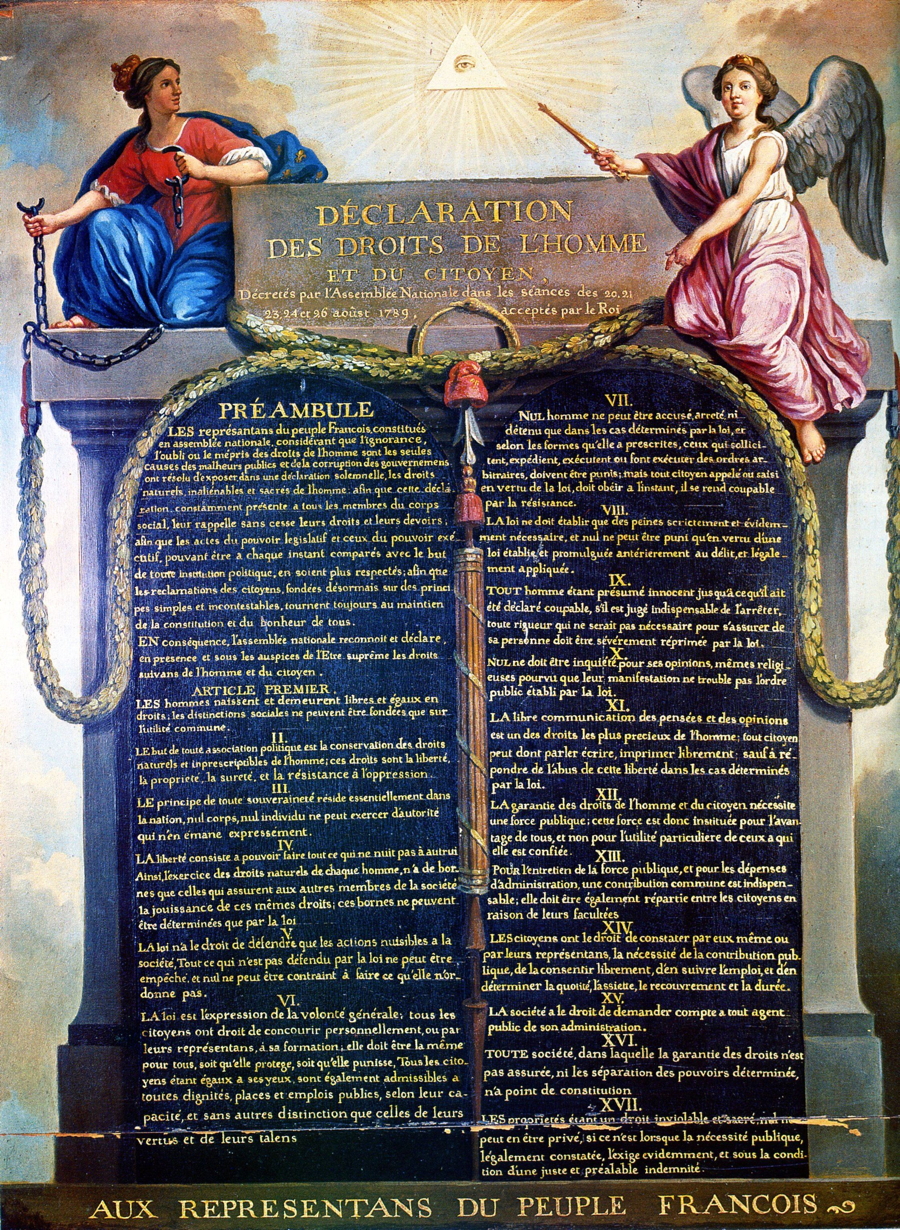 DÉCLARATION
DES DROITS DE L'HOMME
ET DU CITOYEN,
Décretés par l'Assemblée Nationale dans les séances des 20, 21
23, 24 et 26 aoûst 1789, acceptés par le Roi
PRÉAMBULE
LES représantans du peuple François, constitués
en assemblée nationale, considérant que l'ignorance,
l'oubli ou le mépris des droits de l'homme sont les seules
causes des malheurs publics et de la corruption des gouvernemens
ont résolu d'exposer, dans une déclaration solemnelle, les droits
naturels, inaliénables et sacrés de l'homme: afin que cette décla
ration, constamment présente a tous les membres du corps
social, leur rappelle sans cesse leurs droits et leurs devoirs;
afin que les actes du pouvoir legislatif et ceux du pouvoir exé
cutif, pouvant être a chaque instant comparés avec le but
de toute institution politique, en soient plus respectés; afin que
les reclamations des citoyens, fondées désormais sur des princi
pes simples et incontestables, tournent toujours au maintien
de la constitution et du bonheur de tous.
EN conséquence, l'assemblée nationale reconnoit et déclare,
en presence et sous les auspices de l'Etre suprême les droits
suivans de l'homme et du citoyen.
ARTICLE PREMIER.
LES hommes naissent et demeurent libres et égaux en
droits. les distinctions sociales ne peuvent être fondées que sur
l'utilité commune.
II.
LE but de toute association politique est la conservation des droits
naturels et inprescriptibles de l'homme; ces droits sont la liberté,
la propriété, la sureté, et la résistance à l'oppression.
III.
LE principe de toute souveraineté réside essentiellement dans
la nation, nul corps, nul individu ne peut exercer d'autorité
qui n'en émane expressément.
IV.
LA liberté consiste a pouvoir faire tout ce qui ne nuit pas à autrui
Ainsi, l'exercice des droits naturels de chaque homme, n'a de bor-
nes que celles qui assurent aux autres membres de la société
la jouissance de ces mêmes droits; ces bornes ne peuvent
être déterminées que par la loi
V.
LA loi n'a le droit de défendre que les actions nuisibles a la
société. Tout ce qui n'est pas défendu par la loi ne peut être
empêché, et nul ne peut être contraint à faire ce qu'elle n'or-
donne pas.
VI.
LA loi est l'expression de la volonté générale; tous les
citoyens ont droit de concourir personnellement, ou par
leurs représentans, à sa formation; elle doit être la même
pour tous, soit qu'elle protege, soit qu'elle punisse. Tous les cito-
yens étant égaux a ses yeux, sont également admissibles a
toutes dignités, places et emplois publics, selon leur ca-
pacité, et sans autres distinction que celles de leurs
vertus et de leurs talens
VII.
NUL homme ne peut être accusé, arreté, ni
détenu que dans les cas déterminés par la loi, et
selon les formes qu'elle a prescrites, ceux qui sollici-
tent, expédient, exécutent ou font exécuter des ordres ar-
bitraires, doivent être punis; mais tout citoyen appelé ou saisi
en vertu de la loi, doit obéir a l'instant, il se rend coupable
par la résistance.
VIII.
LA loi ne doit établir que des peines strictement et évidem-
ment nécessaire, et nul ne peut être puni qu'en vertu d'une
loi établie et promulguée antérierement au délit, et légale-
ment appliquée.
IX.
TOUT homme étant présumé innocent jusqu'a ce qu'il ait
été déclaré coupable, s'il est jugé indispensable de l'arrêter,
toute rigueur qui ne serait pas nécessaire pour s'assurer de
sa personne doit être sévèrement réprimée par la loi.
X.
NUL ne doit être inquiété pour ses opinions, mêmes religi-
euses pourvu que leur manifestation ne trouble pas l'ordre
public établi par la loi.
XI.
LA libre communication des pensées et des opinions
est un des droits les plus precieux de l'homme; tout citoyen
peut dont parler écrire, imprimer librement: sauf à ré-
pondre de l'abus de cette liberté dans les cas déterminés
par la loi.
XII.
LA garantie des droits de l'homme et du citoyen nécessite
une force publique; cette force est donc instituée pour l'avan-
tage de tous, et non pour l'utilité particuliere de ceux a qui
elle est confiée.
XIII.
POUR l'entretien de la force publique, et pour les dépenses
d'administration, une contribution commune est indispen-
sable; elle doit être également répartie entre les citoyens en
raison de leurs facultées
XIV.
LES citoyens ont le droit de constater par eux même ou
par leurs représentans, la nécessité de la contribution pub-
lique, de la consentir librement, d'en suivre l'emploi, et d'en
déterminer la quotité, l'assiette, le recouvrement et la durée.
XV.
LA société a le droit de demander compte a tout agent
public de son administration.
XVI.
TOUTE société, dans laquelle la garantie des droits n'est
pas assurée, ni les séparation des pouvoirs déterminée,
n'a point de constitution
XVII.
LES proprietés étant un droit inviolable et sacré, nul ne
peut en être privé, si ce n'est lorsque la nécessité publique,
légalement constatée, l'exige evidemment, et sous la condi-
tion d'une juste et préalable indemnité.
AUX REPRESENTANS DU PEUPLE FRANCOIS